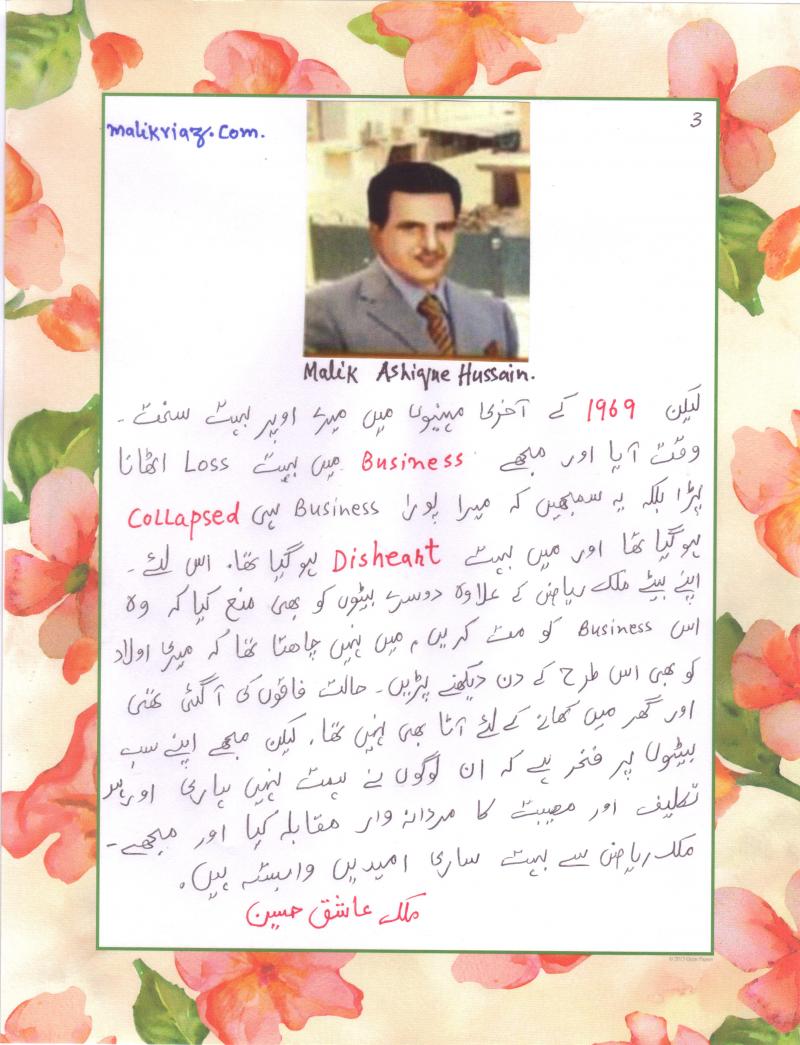 malikriaz.com.
3
Malik Ashique Hussain.
لیکن 1969 کے آخری مہینوں میں میرے اوپر بہت سخت۔
وقت آیا اور مجھے Business میں بہت Loss اٹھانا
پڑا بلکہ یہ سمجھیں کہ میرا پورا Business ہی Collapsed
ہوگیا تھا اور میں بہت Disheart ہوگیا تھا۔ اس لئے۔
اپنے بیٹے ملک ریاض کے علاوہ دوسرے بیٹوں کو بھی منع کیا کہ وہ
اس Business کو مت کریں، میں نہیں چاھتا تھا کہ میری اولاد
کو بھی اس طرح کے دن دیکھنے پڑیں۔ حالت فاقوں کی آگئی تھی
اور گھر میں کھانے کے لئے آٹا بھی نہیں تھا۔ لیکن مجھے اپنے سب
بیٹوں پر فخر ہے کہ ان لوگوں نے ہمت نہیں ہاری اور ہر
تکلیف اور مصیبت کا مردانہ وار مقابلہ کیا اور مجھے۔
ملک ریاض سے بہت ساری امیدیں وابستہ ہیں۔
ملک عاشق حسین